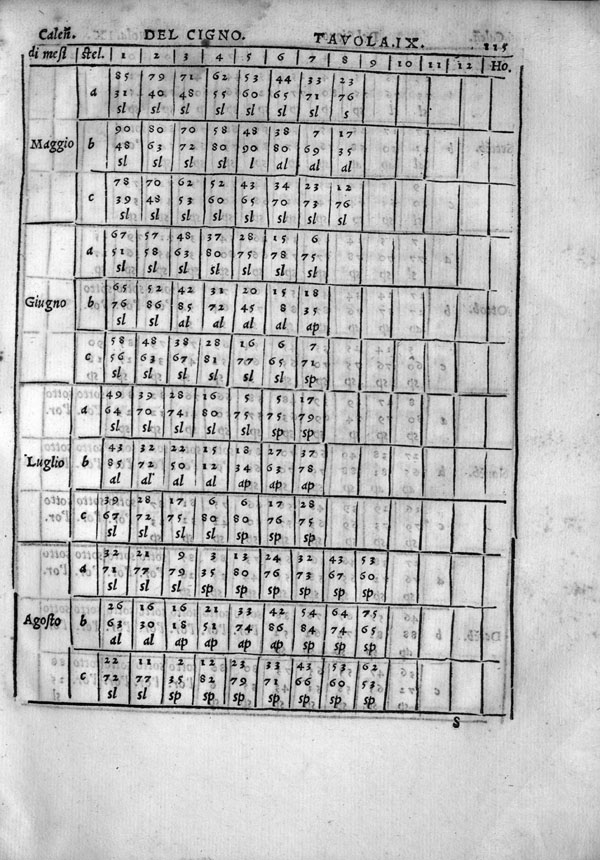 Caleñ. DEL CIGNO. TAVOLA.IX. 115
di mesi stel. 1 2 3 4 5 6 7 8 9 10 11 12 Ho.
85 79 71 62 53 44 33 23
a 31 40 48 55 60 65 71 76
sl sl sl sl sl sl sl s
90 80 70 58 48 38 7 17
Maggio b 48 63 72 80 90 80 69 35
sl sl sl sl l al al al
78 70 62 52 43 34 23 12
c 39 48 53 60 65 70 73 76
sl sl sl sl sl sl sl sl
67 57 48 37 28 15 6
a 51 58 63 80 75 78 75
sl sl sl sl sl sl sl
65 52 42 31 20 15 18
Giugno b 76 86 85 72 45 8 35
sl sl al al al al ap
58 48 38 28 16 6 7
c 56 63 67 81 77 65 71
sl sl sl sl sl sl sp
49 39 28 16 5 5 17
a 64 70 74 80 75 75 79
sl sl sl sl sl sp sp
43 32 22 15 18 27 37
Luglio b 85 72 50 12 34 63 78
al al al al ap ap ap
39 28 17 6 6 17 28
c 67 72 75 80 80 76 75
sl sl sl sl sp sp sp
32 21 9 3 13 24 32 43 53
a 71 77 79 35 80 76 73 67 60
sl sl sl sp sp sp sp sp sp
26 16 16 21 33 42 54 64 75
Agosto b 63 30 18 51 74 86 84 74 65
al al ap ap ap ap sp sp sp
22 11 2 12 23 33 43 53 62
c 72 77 35 82 79 71 66 60 53
sl sl sp sp sp sp sp sp sp
S